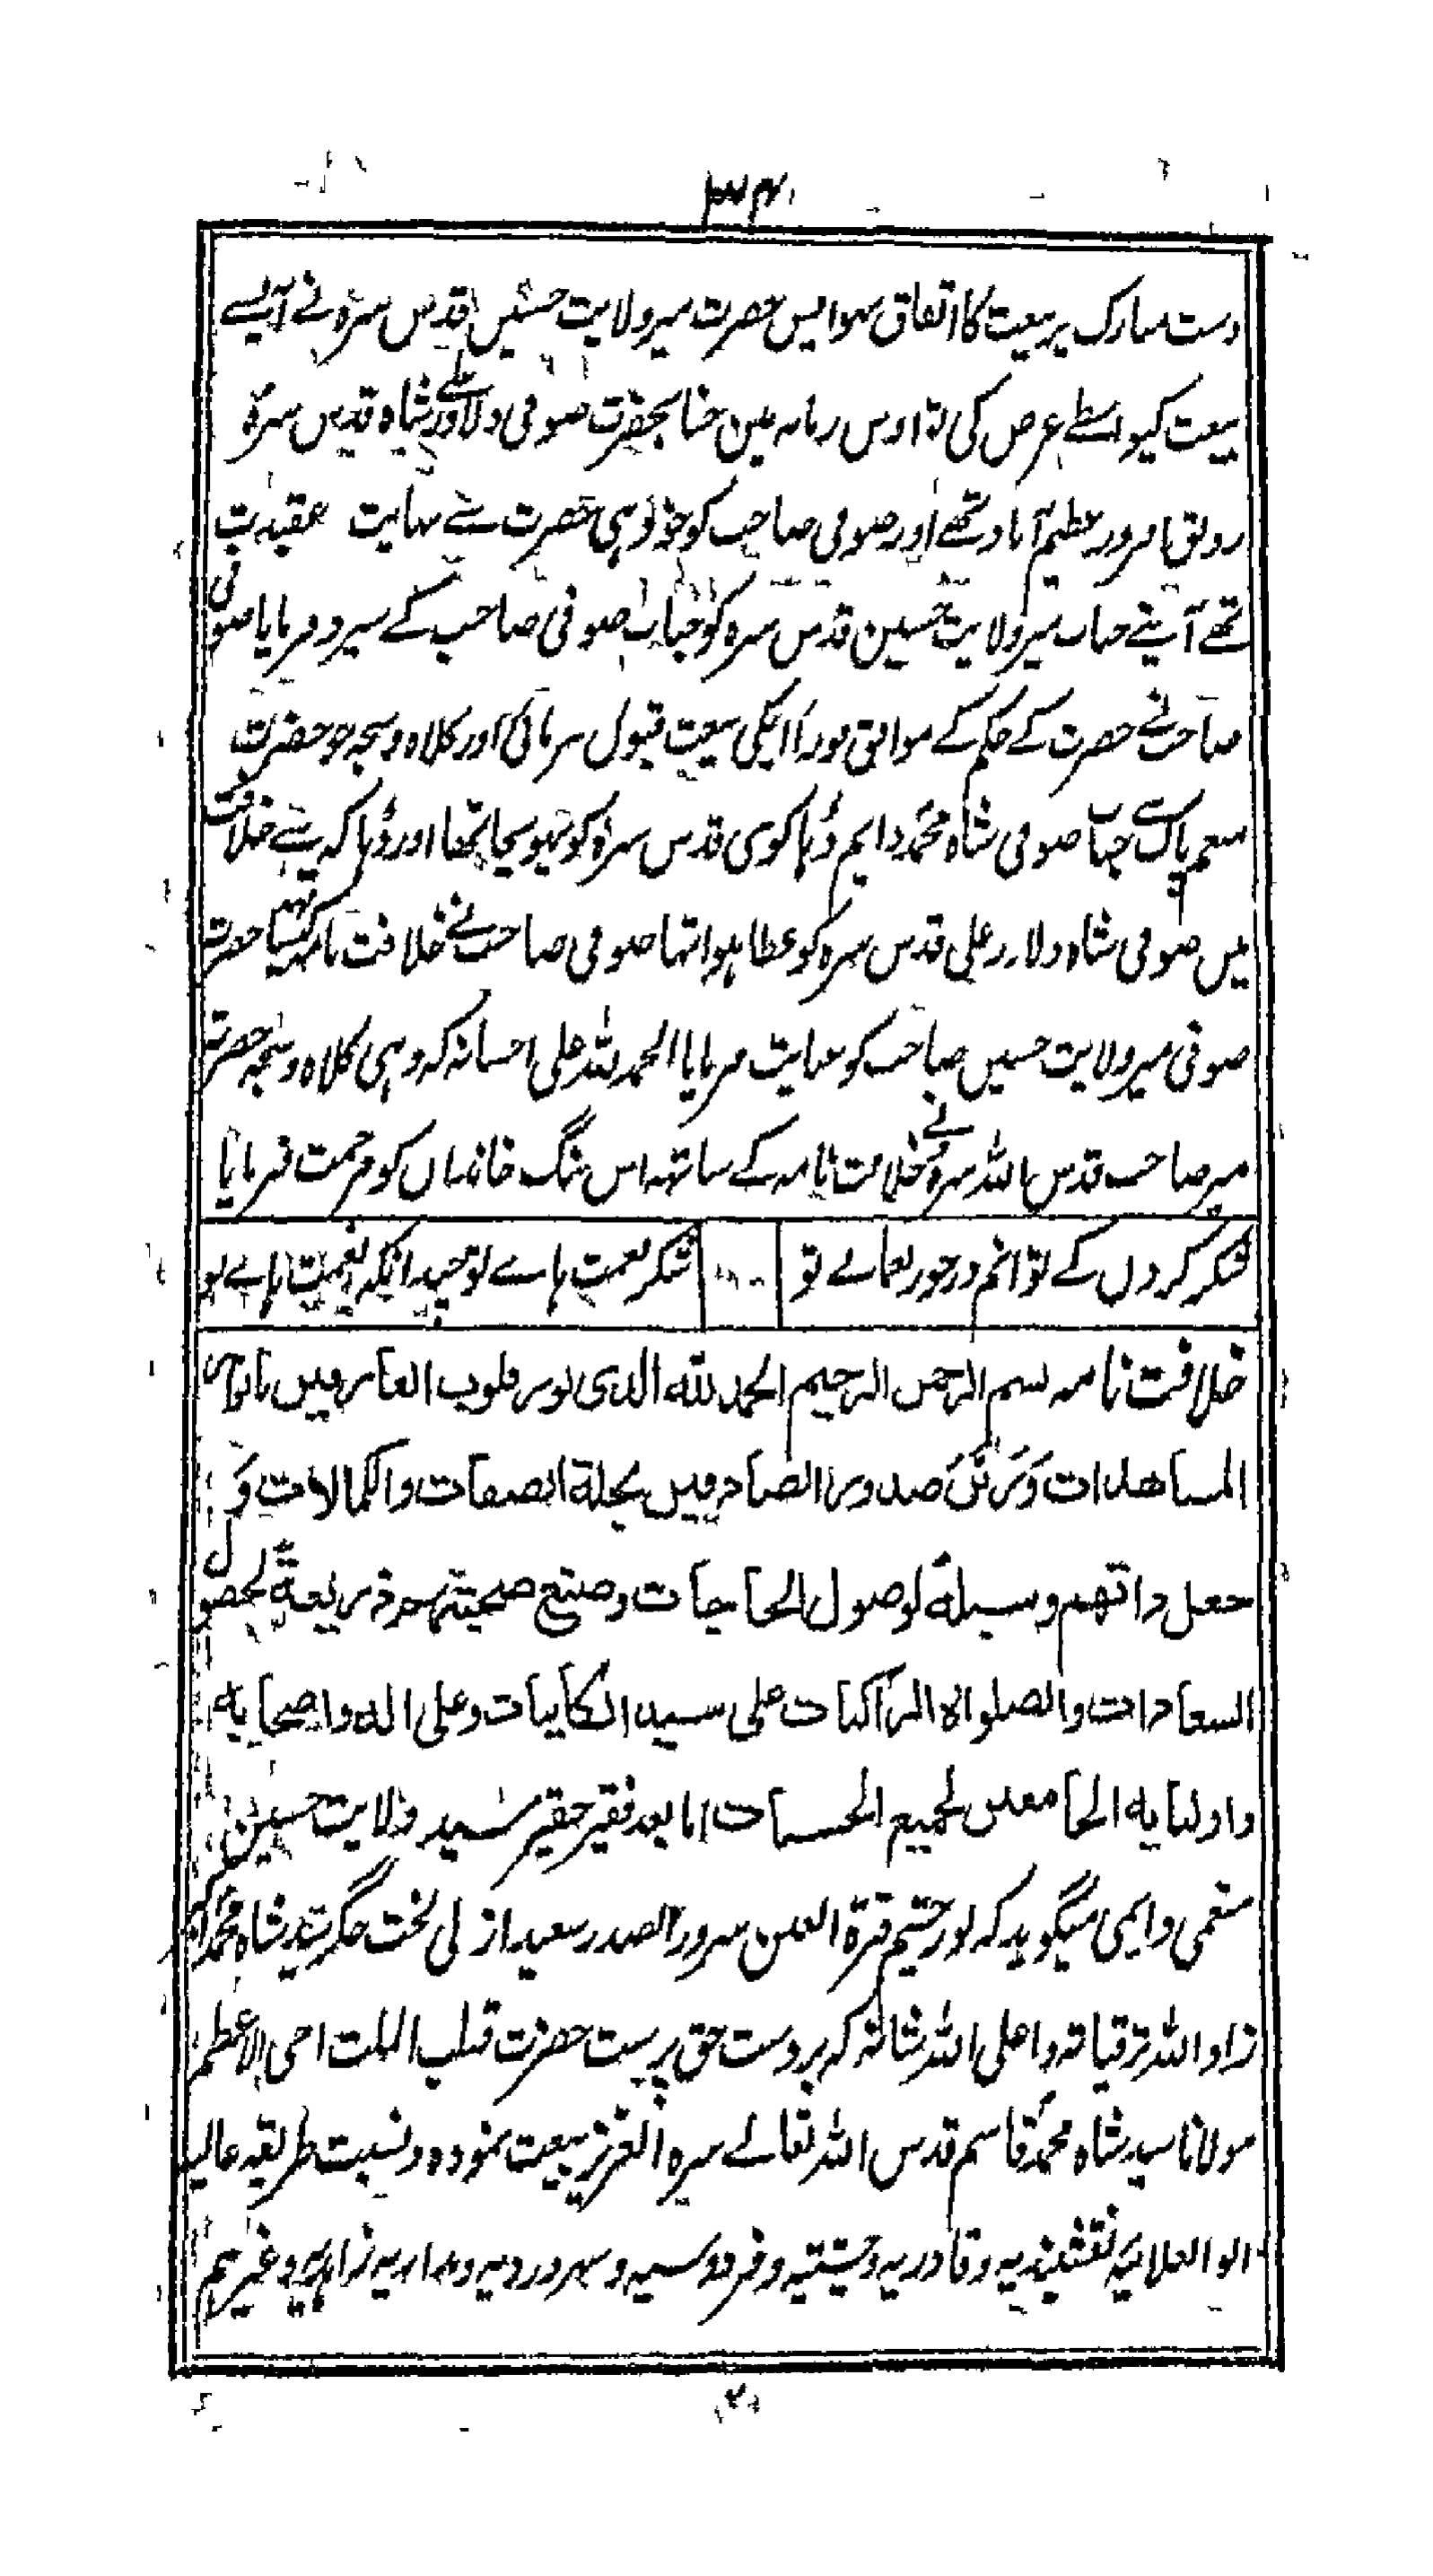 دست مبارک پر بیعت کا اتفاق ہوا پس حضرت میر ولایت حسین قدس سرہ نے آپسے
بیعت کیواسطے عرض کی تو اوس زمانہ مین جناب حضرت صوفی دلاور علی شاہ قدس سرہ
رونق افروز عظیم آباد تھے اور صوفی صاحب کو خود ہی حضرت سے نہایت عقیدت
تھے آپنے جناب میر ولایت حسین قدس سرہ کو جناب صوفی صاحب کے سپرد فرمایا صوفی
صاحب نے حضرت کے حکم کے موافق فوراً انکی بیعت قبول فرمائی اور کلاہ و سبحہ جو حضرت
منعم پاک سے جناب صوفی شاہ محمد دایم ڈہاکوی قدس سرہ کو پہونچا تھا اور ڈہاکہ سے خلافت
میں صوفی شاہ دلاور علی قدس سرہ کو عطا ہوا تہا صوفی صاحب نے خلافت نامہ کیساتہہ حضرت
صوفی میر ولایت حسین صاحب کو عنایت فرمایا الحمد للہ علی احسانہ کہ وہی کلاہ و سبحہ حضرت
میر صاحب قدس اللہ سرہ نے خلافت نامہ کے ساتہہ اس ننگ خانداں کو مرحمت فرمایا
شکر کردں کے توانم درخور نعمالے تو شکر نعمت ہاے تو چندانکہ نعمت ہاے تو
خلافت نامہ بسم الرحمن الرحیم الحمد للہ الذی نور قلوب العارفین بانوار
المشاهدات و زین صدور الصادقین بحلة الصفات والکمالات و
جعل ذاتهم وسیلة لوصول الحاجات وصنع صحبتهم ذریعة لحصول
السعادات والصلواة الزاکیات علی سید الکاینات وعلی اله واصحابه
واولیایه الجامعین لجمیع الحسنات اما بعد فقیر حقیر سید ولایت حسین
منعمی دایمی میگوید کہ نور چشم قرة العین سرور الصدر سعید ازلی لخت جگر سید شاہ محمد اکبر
زاد اللہ ترقیاتہ و اعلی اللہ شانہ کہ بر دست حق پرست حضرت قبلہ الملت اخی الاعظم
مولانا سید شاہ محمد قاسم قدس اللہ تعالے سرہ العزیز بیعت نمودہ و نسبت طریقہ عالیہ
ابوالعلائیہ نقشبندیہ و قادریہ و چشتیہ و فردوسیہ و سہروردیہ و مداریہ زاہدیہ و غیرہم